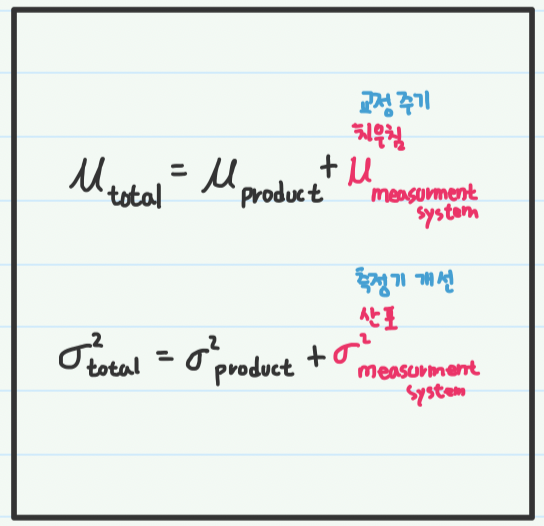 교정 주기
치우침
μ total = μ product + μ measurment system
측정기 개선
산포
σ² total = σ² product + σ² measurment system